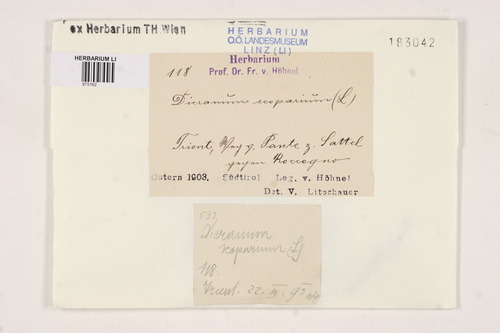 ex Herbarium TH Wien
HERBARIUM
O.Ö. LANDESMUSEUM
LINZ (LI)
183042
HERBARIUM LI
Herbarium
Prof. Dr. Fr. v. Höhnel
118
Dicranum scoparium (L)
Trient, Weg v. Pante z. Sattel
gegen Roccogno
Ostern 1903. Südtirol Leg. v. Höhnel
Det. V. Litschauer
Dicranum
scoparium L
118.